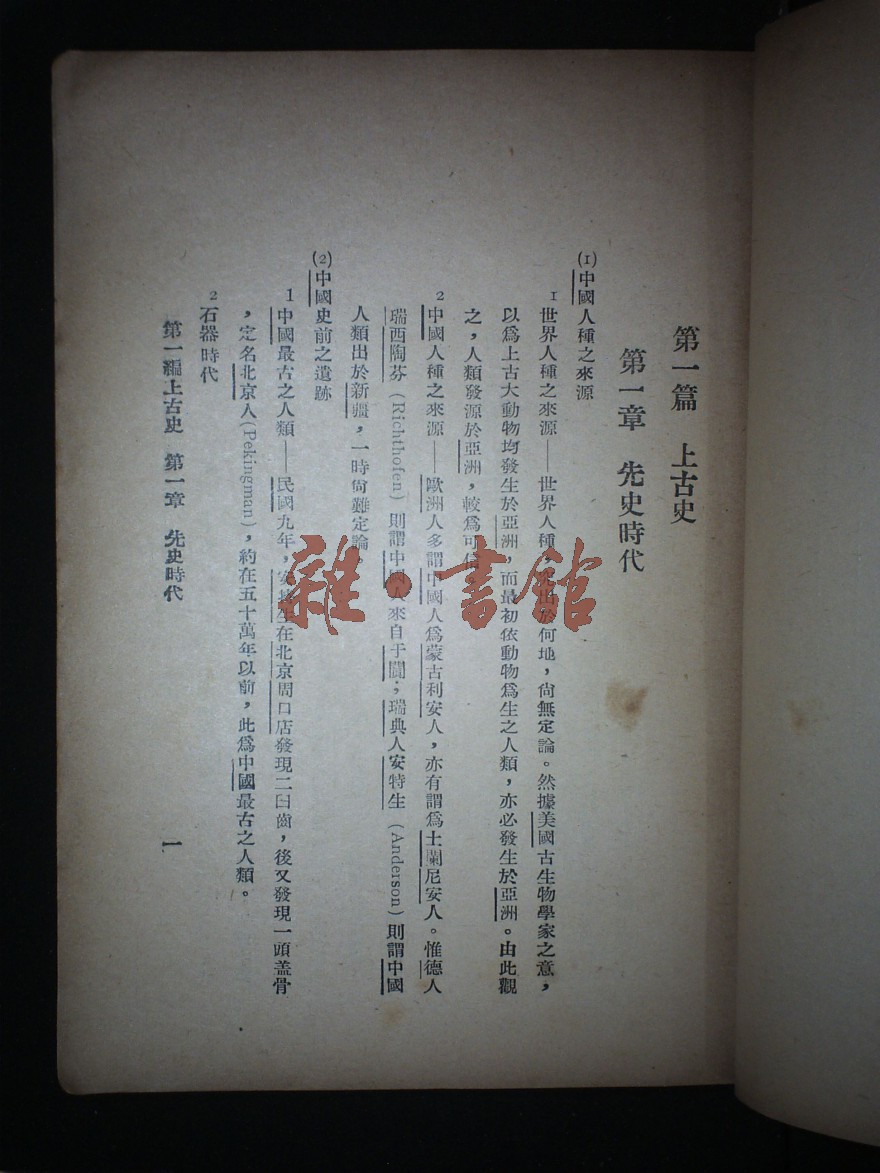 第一篇 上古史
第一章 先史時代
(1)中國人種之來源
1 世界人種之來源——世界人種,究出於何地,尙無定論。然據美國古生物學家之意,
以爲上古大動物均發生於亞洲,而最初依動物爲生之人類,亦必發生於亞洲。由此觀
之,人類發源於亞洲,較爲可信
2 中國人種之來源——歐洲人多謂中國人爲蒙古利安人,亦有謂爲土蘭尼安人。惟德人
瑞西陶芬(Richthofen)則謂中國人來自于闐;瑞典人安特生(Anderson)則謂中國
人類出於新疆,一時尙難定論。
(2)中國史前之遺跡
1 中國最古之人類——民國九年,安特生在北京周口店發現二臼齒,後又發現一頭盖骨
,定名北京人(Pekingman),約在五十萬年以前,此爲中國最古之人類。
2 石器時代
第一編上古史 第一章 先史時代
一
雜·書館